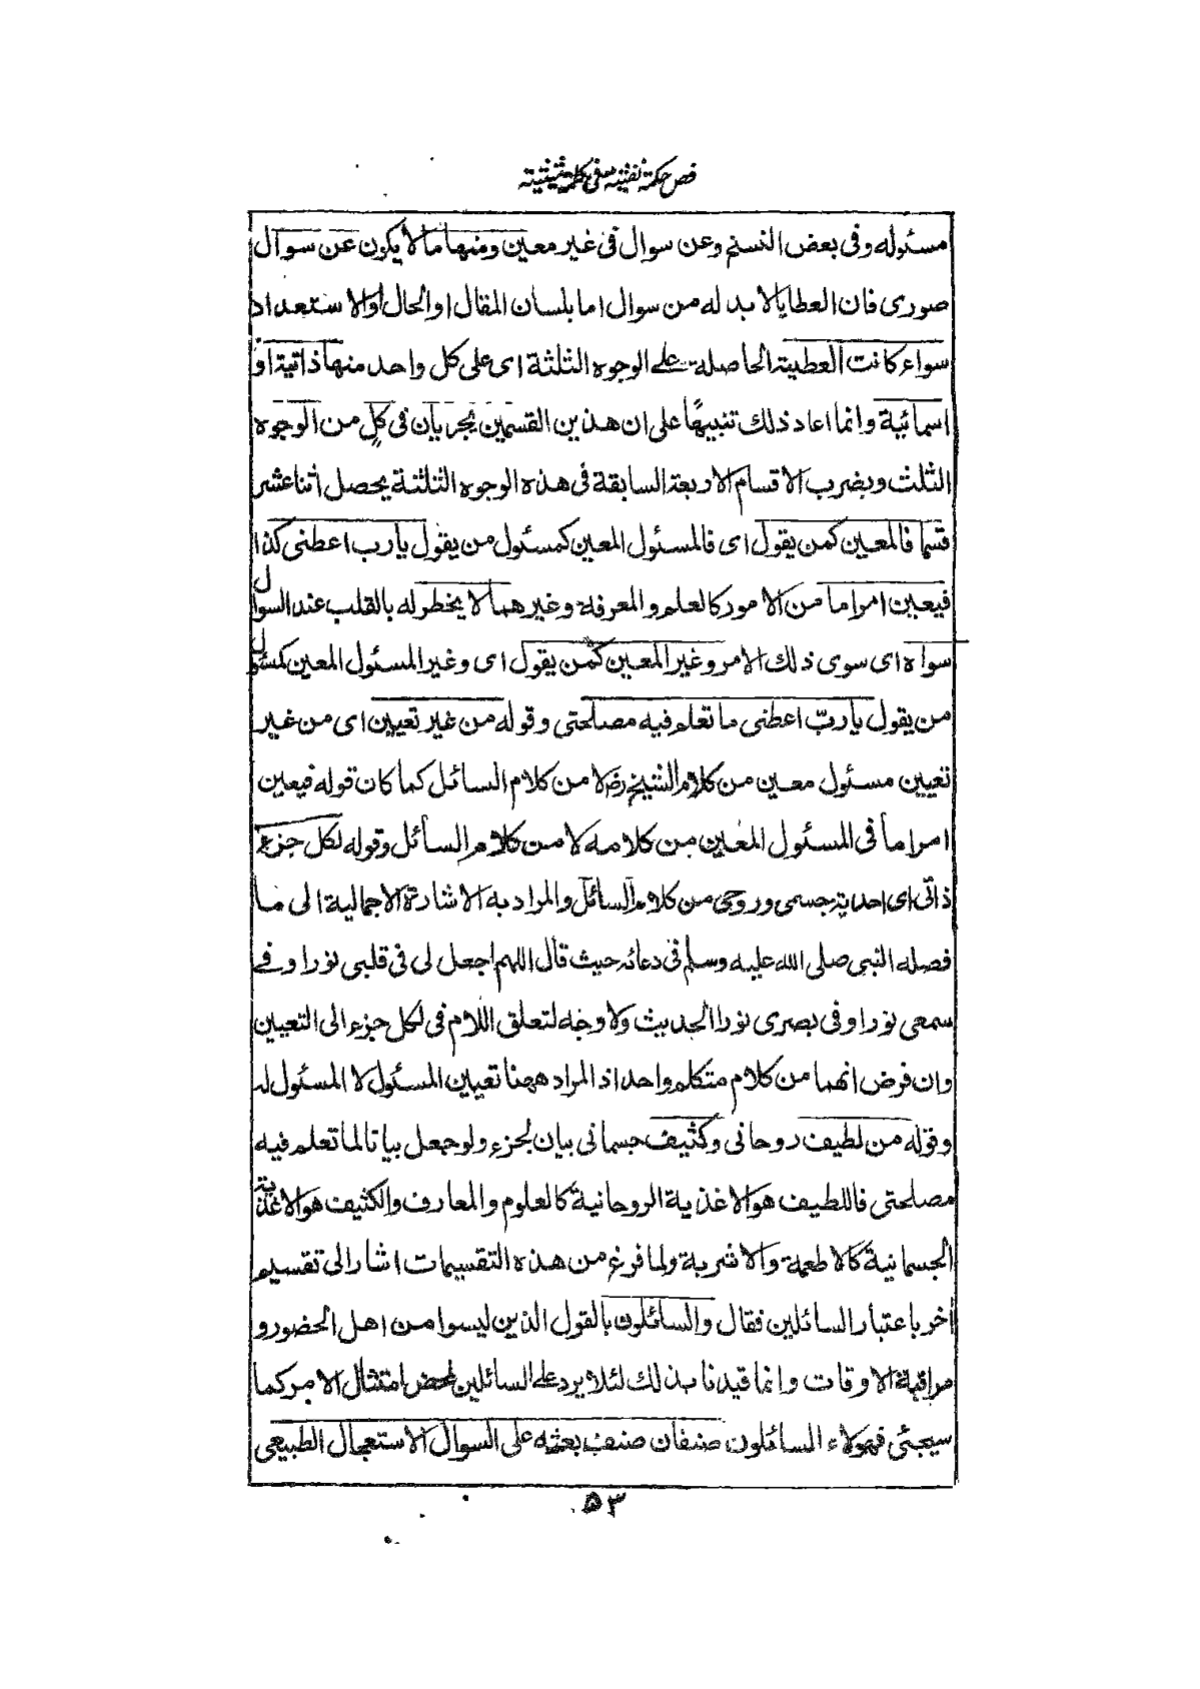 فص حكمة نفثية فى كلمة شيثية
مسئوله وفى بعض النسخ وعن سوال فى غير معين ومنها ما لا يكون عن سوال
صورى فان العطايا لا بد له من سوال اما بلسان المقال او الحال او الاستعداد
سواء كانت العطية الحاصلة على الوجوه الثلثة اى على كل واحد منها ذاتية او
اسمائية وانما اعاد ذلك تنبيهًا على ان هذين القسمين يجريان فى كلٍ من الوجوه
الثلث وبضرب الاقسام الاربعة السابقة فى هذه الوجوه الثلثة يحصل اثنا عشر
قسما فالمعين كمن يقول اى فالمسئول المعين كمسئول من يقول يا رب اعطنى كذا
فيعين امرا ما من الامور كالعلم والمعرفة وغيرهما لا يخطر له بالقلب عند السوال
سواه اى سوى ذلك الامر وغير المعين كمن يقول اى وغير المسئول المعين كمسئول
من يقول يا ربّ اعطنى ما تعلم فيه مصلحتى وقوله من غير تعيين اى من غير
تعيين مسئول معين من كلام الشيخ رض لا من كلام السائل كما كان قوله فيعين
امرا ما فى المسئول المعين من كلامه لا من كلام السائل وقوله لكل جزء
ذاتى اى احدية جسمى وروحى من كلام السائل والمراد به الاشارة الاجمالية الى ما
فصله النبى صلى الله عليه وسلم فى دعائه حيث قال اللهم اجعل لى فى قلبى نورا وفى
سمعى نورا وفى بصرى نورا الحديث ولا وجه لتعلق اللام فى لكل جزء الى التعيين
وان فرض انهما من كلام متكلم واحد اذ المراد ههنا تعيين المسئول لا المسئول له
وقوله من لطيف روحانى وكثيف جسمانى بيان لجزء ولو جعل بيانا لما تعلم فيه
مصلحتى فاللطيف هو الاغذية الروحانية كالعلوم والمعارف والكثيف هو الاغذية
الجسمانية كالاطعمة والاشربة ولما فرغ من هذه التقسيمات اشار الى تقسيم
اخر باعتبار السائلين فقال والسائلون بالقول الذين ليسوا من اهل الحضور و
مراقبة الاوقات وانما قيدنا بذلك لئلا يرد على السائلين لمحض امتثال الامر كما
سيجئى فهولاء السائلون صنفان صنف بعثه على السوال الاستعجال الطبيعى
٥٣